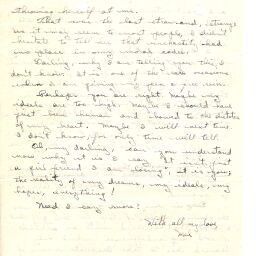 throwing herself at me.
That was the last straw and, strange
as it may seem to most people, I didn't
hesitate to tell her that unchastity had
no place in my whole code.
Darling, why I am telling you this, I
don't know. It is one of the reasons
when I am giving my
Perhaps you are right. Maybe my
ideals are too high. Maybe I should have
just been human and bowed to the dictates
of my heart. Maybe I will next time.
I don't know, for only time will tell.
Oh, my darling, can you understand
now why it is I say "It isn't just
a girl friend I am losing", it is you,
the reality of my dreams, my ideals, my
hopes, everything!
Need I say more?
With all my love,